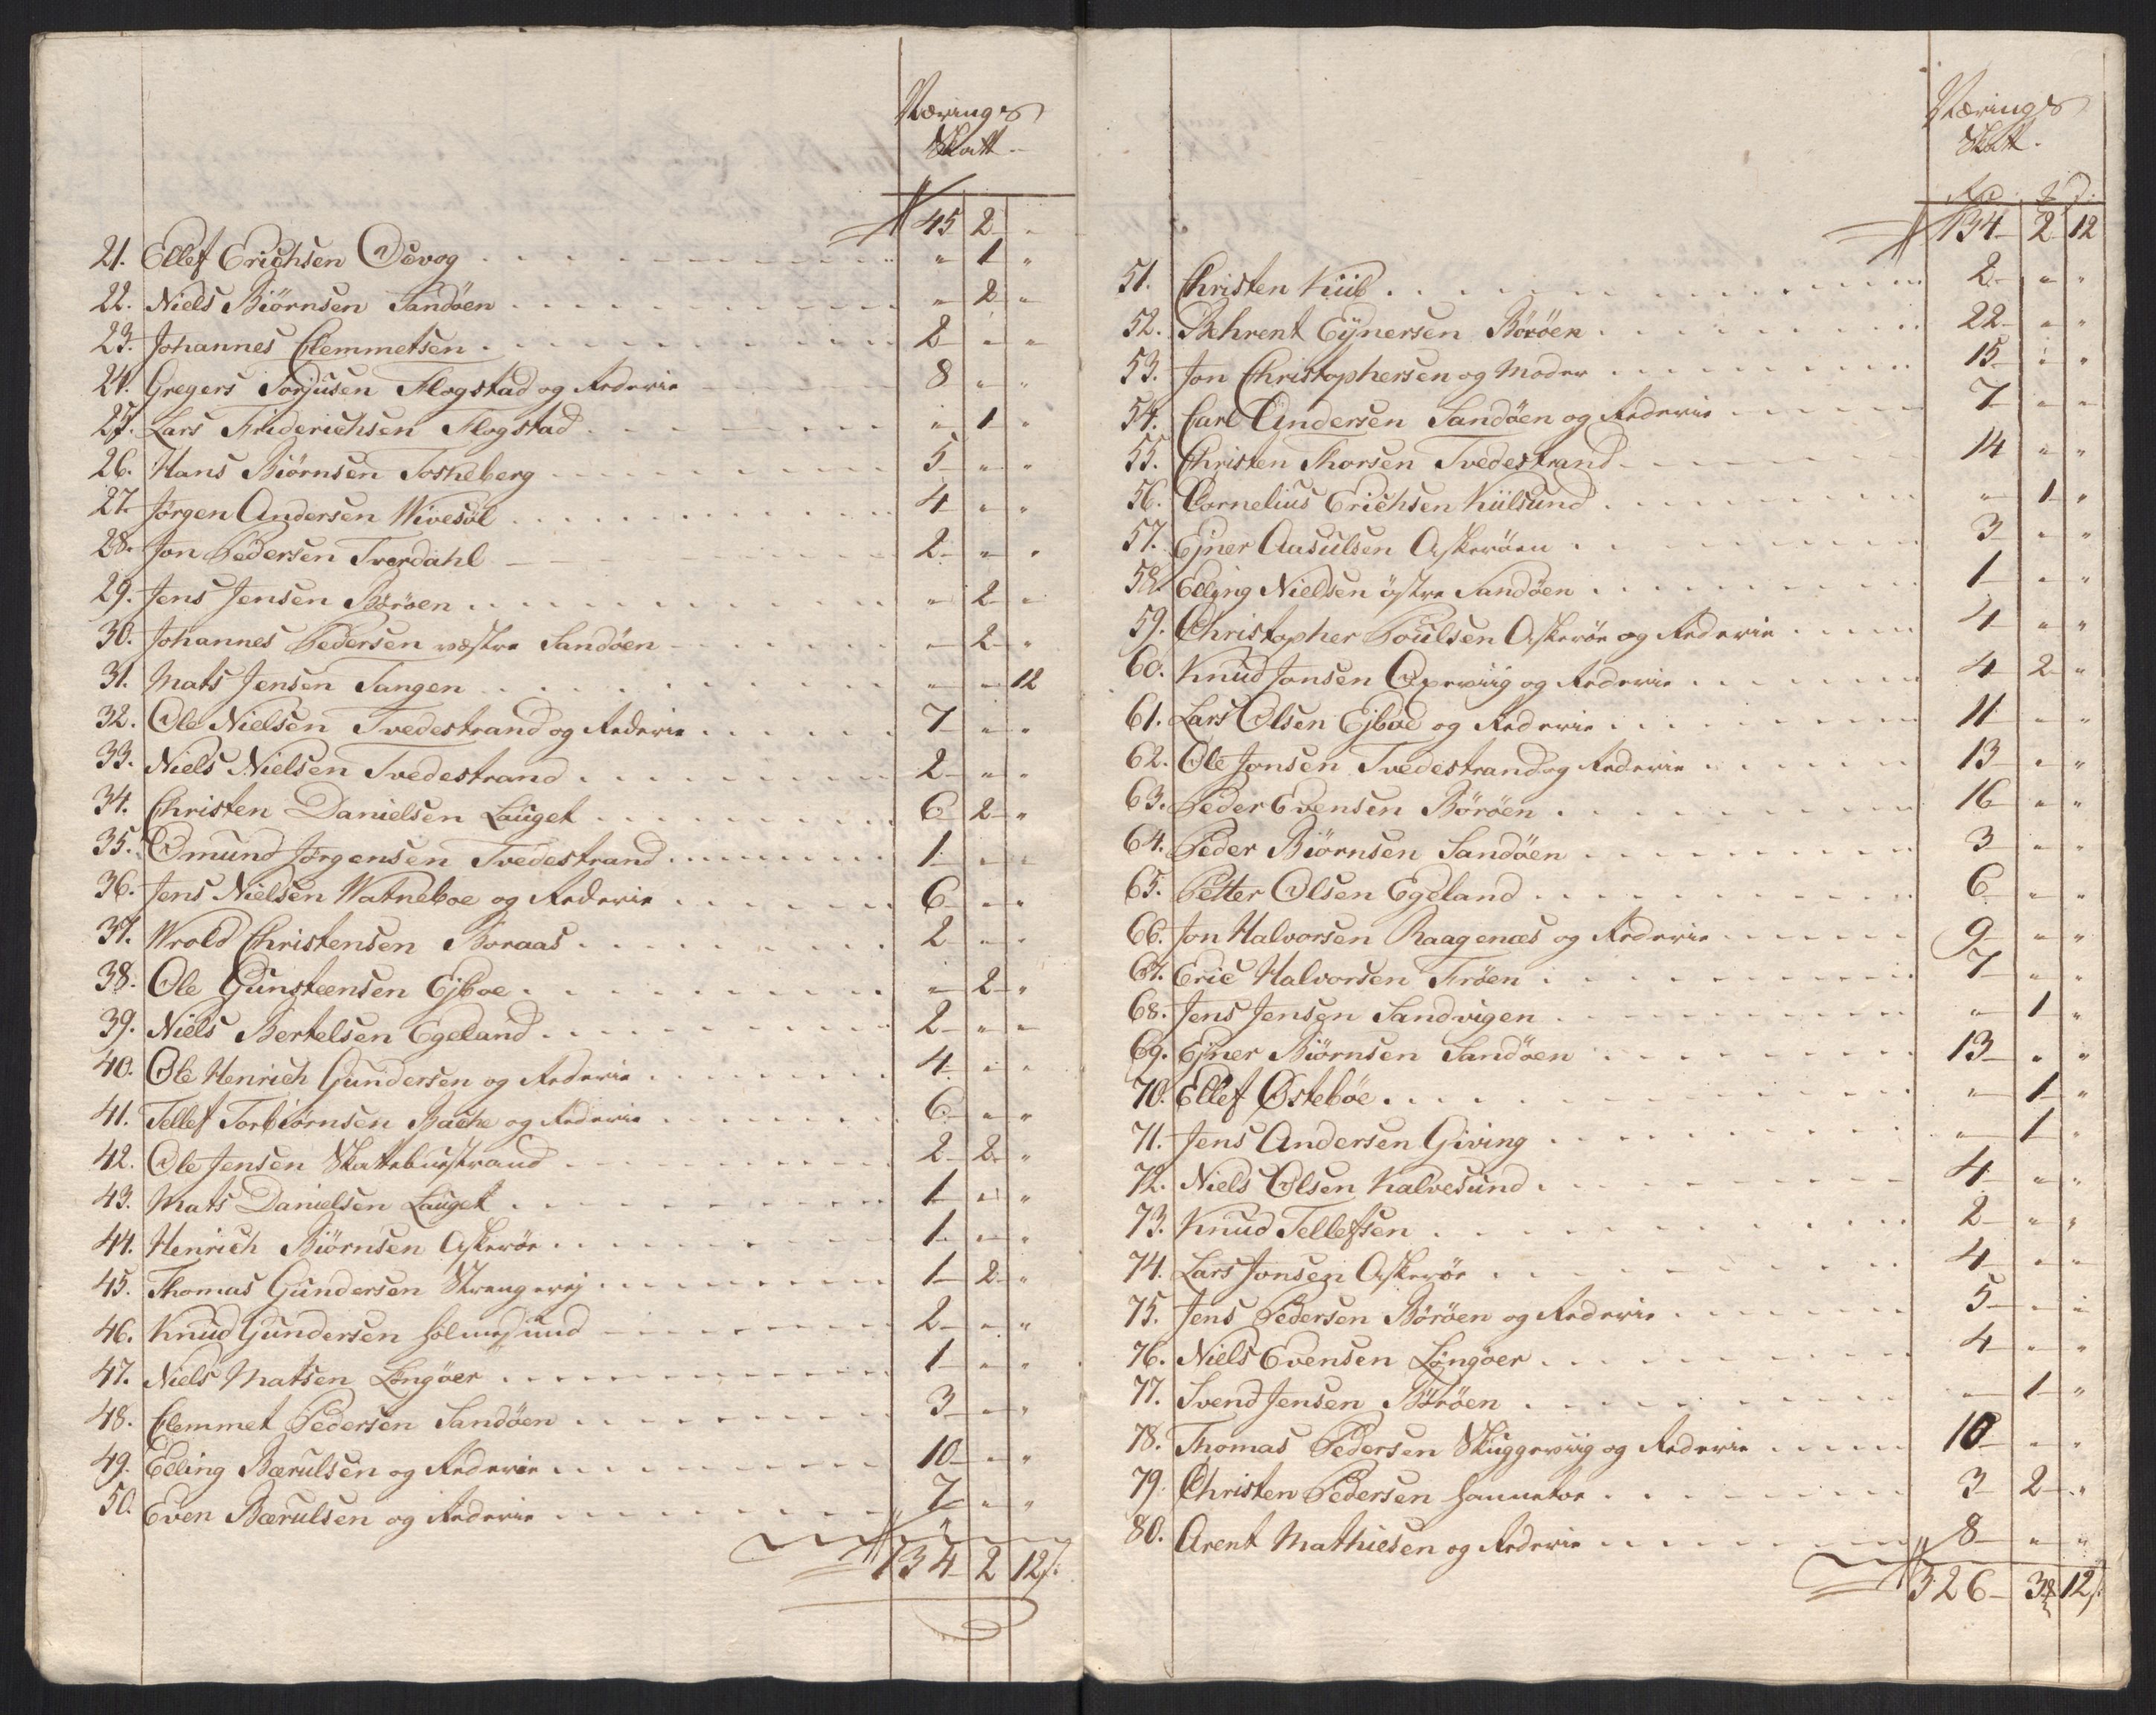 Nærings
Skatt.
45 2 "
21. Ellef Erichsen Dævog " 1 "
22. Niels Biørnsen Sandøen " 2 "
23. Johannes Clemmetsen 2 " "
24. Gregers Torjusen Flogstad og Rederie 8 " "
25. Lars Friderichsen Flogstad " 1 "
26. Hans Biørnsen Tosheberg 5 " "
27. Jørgen Andersen Wivesøl 4 " "
28. Jon Pedersen Tverdahl 2 " "
29. Jens Jensen Børøen " 2 "
30. Johannes Pedersen westre Sandøen " 2 "
31. Mats Jensen Tangen " " 12
32. Ole Nielsen Tvedestrand og Rederie 7 " "
33. Niels Nielsen Tvedestrand 2 " "
34. Christen Danielsen Lauget 6 2 "
35. Omund Jørgensen Tvedestrand 1 " "
36. Jens Nielsen Watneboe og Rederie 6 " "
37. Wrold Christensen Boraas 2 " "
38. Ole Gunsteensen Ejboe " 2 "
39. Niels Bertelsen Egeland 2 " "
40. Ole Henrich Gundersen og Rederie 4 " "
41. Tellef Torbiørnsen Bache og Rederie 6 " "
42. Ole Jensen Skatteboestrand 2 2 "
43. Mats Danielsen Lauget 1 " "
44. Henrich Biørnsen Askerøe 1 " "
45. Thomas Gundersen Strengerej 1 2 "
46. Knud Gundersen Holmesund 2 " "
47. Niels Matsen Løngøer 1 " "
48. Clemmet Pedersen Sandøen 3 " "
49. Elling Bærulsen og Rederie 10 " "
50. Even Bærulsen og Rederie 7 " "
134 2 12ß.
Nærings
Skatt.
134 2 12
51. Christen Kiil 2 " "
52. Behrent Eÿnersen Børøen 22 " "
53. Jon Christophersen og Moder 15 " "
54. Carl Andersen Sandøen og Rederie 7 " "
55. Christen Thorsen Tvedestrand 14 " "
56. Cornelius Erichsen Kiilsund " 1 "
57. Ejner Aasulsen Askerøen 3 " "
58. Elling Nielsen østre Sandøen 1 " "
59. Christopher Poulsen Askerøe og Rederie 4 " "
60. Knud Jonsen Oxewiig og Rederie 4 2 "
61. Lars Olsen Ejboe og Rederie 11 " "
62. Ole Jonsen Tvedestrand og Rederie 13 " "
63. Peder Evensen Børøen 16 " "
64. Peder Biørnsen Sandøen 3 " "
65. Petter Olsen Egeland 6 " "
66. Jon Halvorsen Raagenæs og Rederie 9 " "
67. Eric Halvorsen Frøen 7 " "
68. Jens Jensen Sandvigen " 1 "
69. Ejner Biørnsen Sandøen 13 " "
70. Ellef Østebøe " 1 "
71. Jens Andersen Giving " 1 "
72. Niels Olsen Kalvesund 4 " "
73. Knud Tellefsen 2 " "
74. Lars Jonsen Askerøe 4 " "
75. Jens Pedersen Børøen og Rederie 5 " "
76. Niels Evensen Løngøer 4 " "
77. Svend Jensen Børøen " 1 "
78. Thomas Pedersen Skuggewiig og Rederie 10 " "
79. Christen Pedersen Hannetoe 3 2 "
80. Arent Mathiesen og Rederie 8 " "
326 3 12ß.